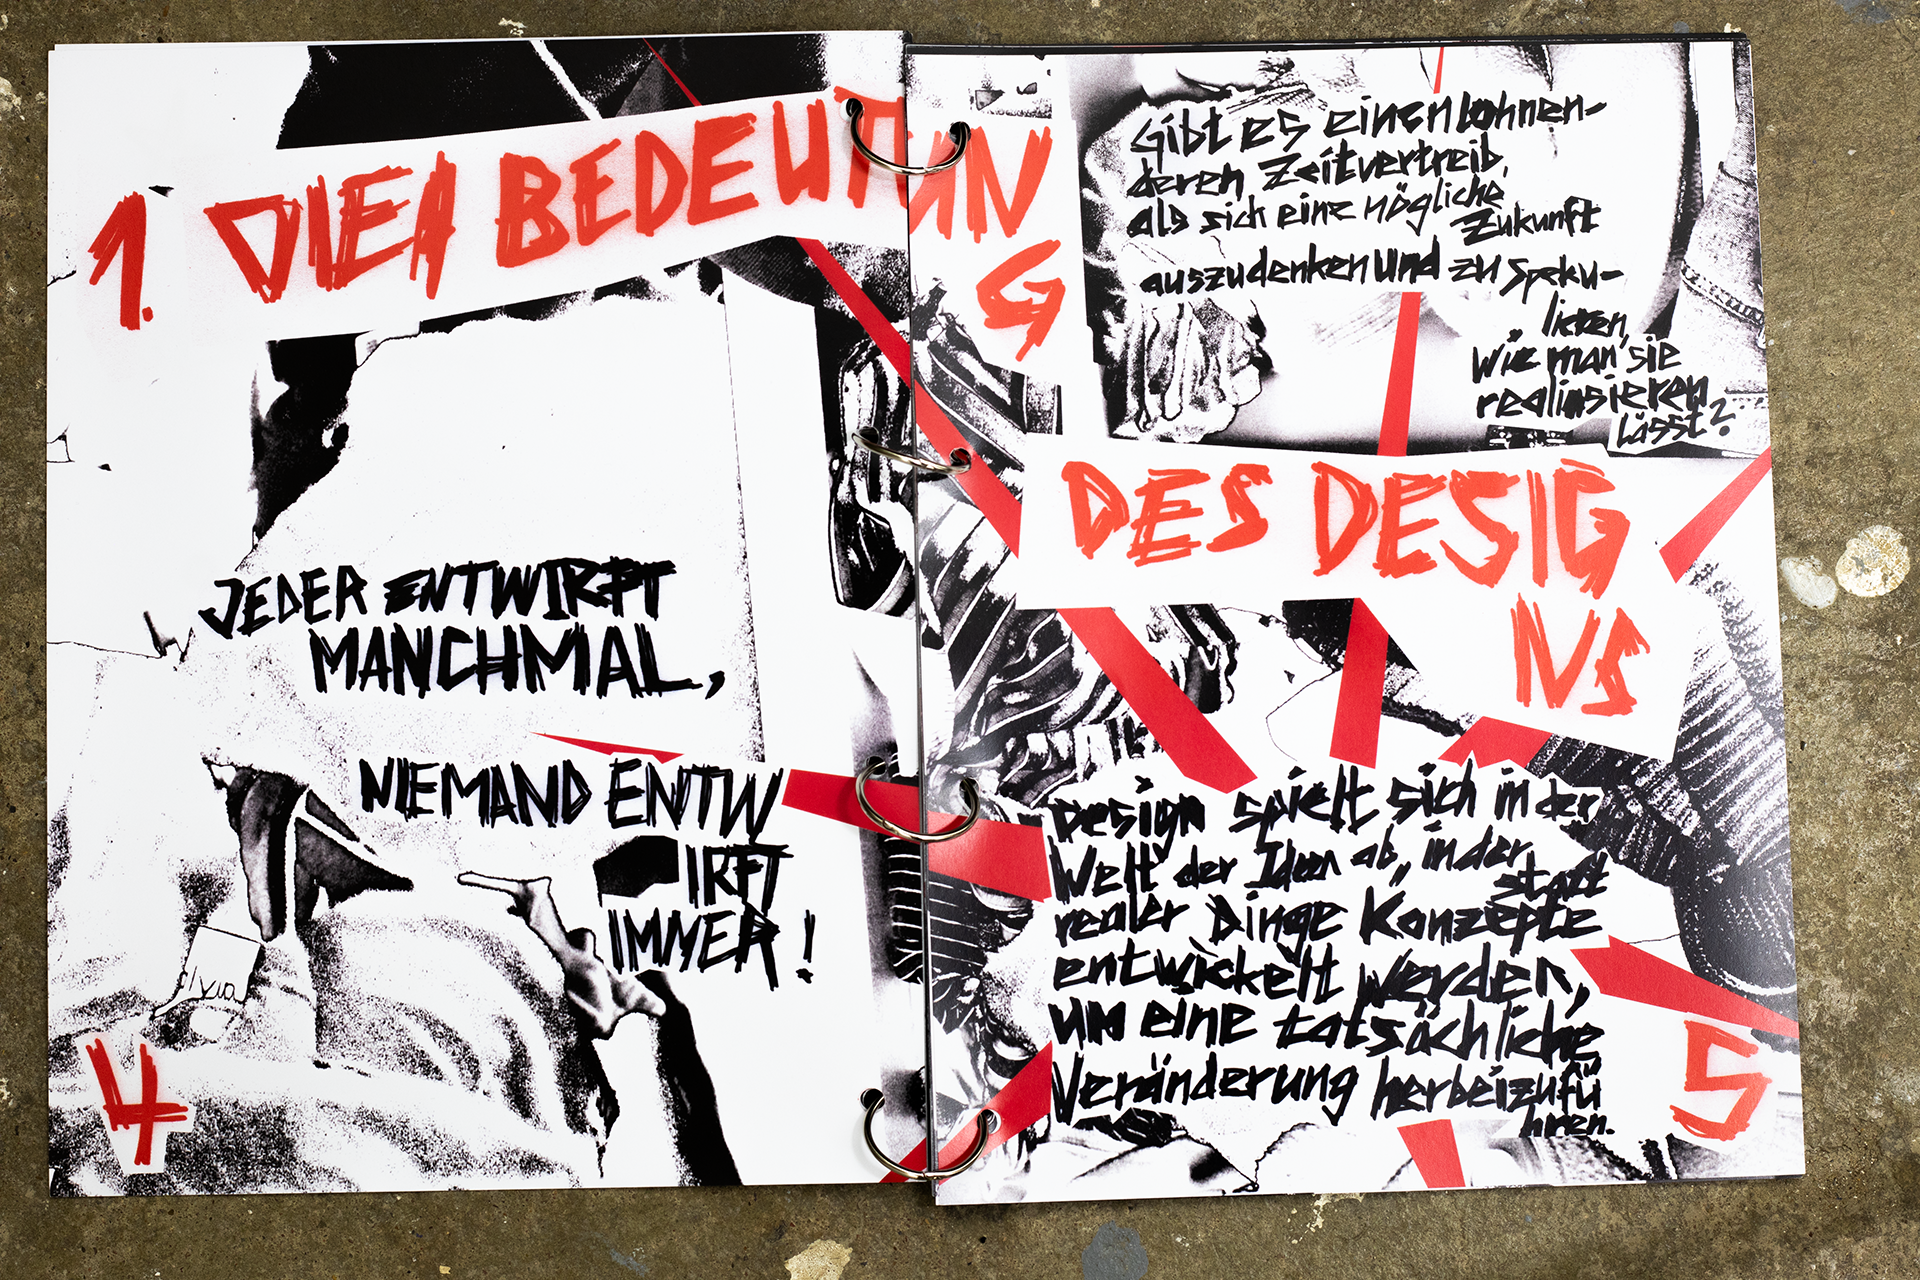 1. DIE BEDEUTUN
G
JEDER ENTWIRFT
MANCHMAL,
NIEMAND ENTW
IRFT
IMMER!
4
Gibt es einen lohnen-
deren Zeitvertreib,
als sich eine mögliche
Zukunft
auszudenken und zu speku-
lieren,
wie man sie
realinsieren
lässt?
DES DESIG
NS
Design spielt sich in der
Welt der Ideen ab, in der
statt
realer Dinge Konzepte
entwickelt werden,
um eine tatsächliche
Veränderung herbeizufü
hren.
5